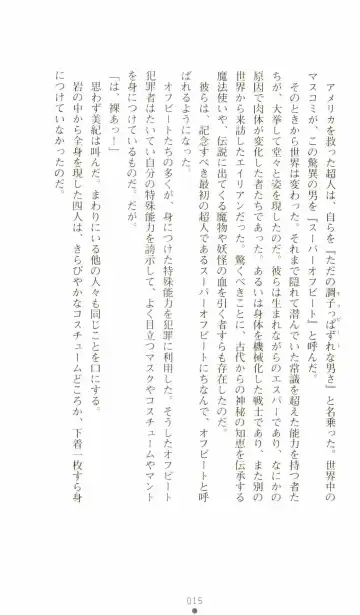 アメリカを救った超人は、自らを『ただの調子っぱずれな男さ』と名乗った。世界中の
マスコミが、この驚異の男を『スーパーオフビート』と呼んだ。
そのときから世界は変わった。それまで隠れて潜んでいた常識を超えた能力を持つ者た
ちが、大挙して堂々と姿を現したのだ。彼らは生まれながらのエスパーであり、なにかの
原因で肉体が変化した者たちであった。あるいは身体を機械化した戦士であり、また別の
世界から来訪したエイリアンだった。驚くべきことに、古代からの神秘の知恵を伝承する
魔法使いや、伝説に出てくる魔物や妖怪の血を引く者すらも存在したのだ。
彼らは、記念すべき最初の超人であるスーパーオフビートにちなんで、オフビートと呼
ばれるようになった。
オフビートたちの多くが、身につけた特殊能力を犯罪に利用した。そうしたオフビート
犯罪者はたいてい自分の特殊能力を誇示して、よく目立つマスクやコスチュームやマント
を身につけているものだ。だが。
「は、裸あっー!」
思わず美紀は叫んだ。まわりにいる他の人々も同じことを口にする。
岩の中から全身を現した四人は、きらびやかなコスチュームどころか、下着一枚すら身
につけていなかったのだ。
015